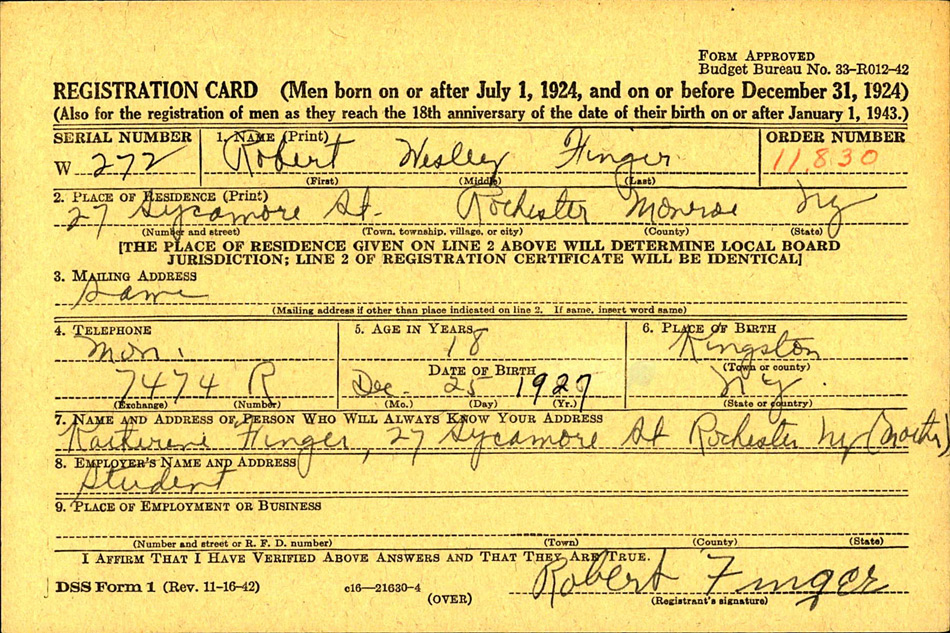 FORM APPROVED
Budget Bureau No. 33–R012–42
REGISTRATION CARD (Men born on or after July 1, 1924, and on or before December 31, 1924)
(Also for the registration of men as they reach the 18th anniversary of the date of their birth on or after January 1, 1943.)
SERIAL NUMBER 1. NAME (Print) ORDER NUMBER
W 272 Robert Wesley Finger 11,830
(First) (Middle) (Last)
2. PLACE OF RESIDENCE (Print)
27 Sycamore St. Rochester Monroe NY
(Number and street) (Town, township, village, or city) (County) (State)
[THE PLACE OF RESIDENCE GIVEN ON LINE 2 ABOVE WILL DETERMINE LOCAL BOARD
JURISDICTION; LINE 2 OF REGISTRATION CERTIFICATE WILL BE IDENTICAL]
3. MAILING ADDRESS
Same
(Mailing address if other than place indicated on line 2. If same, insert word same)
4. TELEPHONE 5. AGE IN YEARS 6. PLACE OF BIRTH
Mon. 18 Kingston
DATE OF BIRTH (Town or county)
7474 R Dec. 25 1927 NY.
(Exchange) (Number) (Mo.) (Day) (Yr.) (State or country)
7. NAME AND ADDRESS OF PERSON WHO WILL ALWAYS KNOW YOUR ADDRESS
Katherine Finger, 27 Sycamore St Rochester NY (Mother)
8. EMPLOYER'S NAME AND ADDRESS
Student
9. PLACE OF EMPLOYMENT OR BUSINESS
(Number and street or R. F. D. number) (Town) (County) (State)
I AFFIRM THAT I HAVE VERIFIED ABOVE ANSWERS AND THAT THEY ARE TRUE.
DSS Form 1 (Rev. 11-16-42) c16—21630-4 (OVER) Robert Finger
(Registrant's signature)